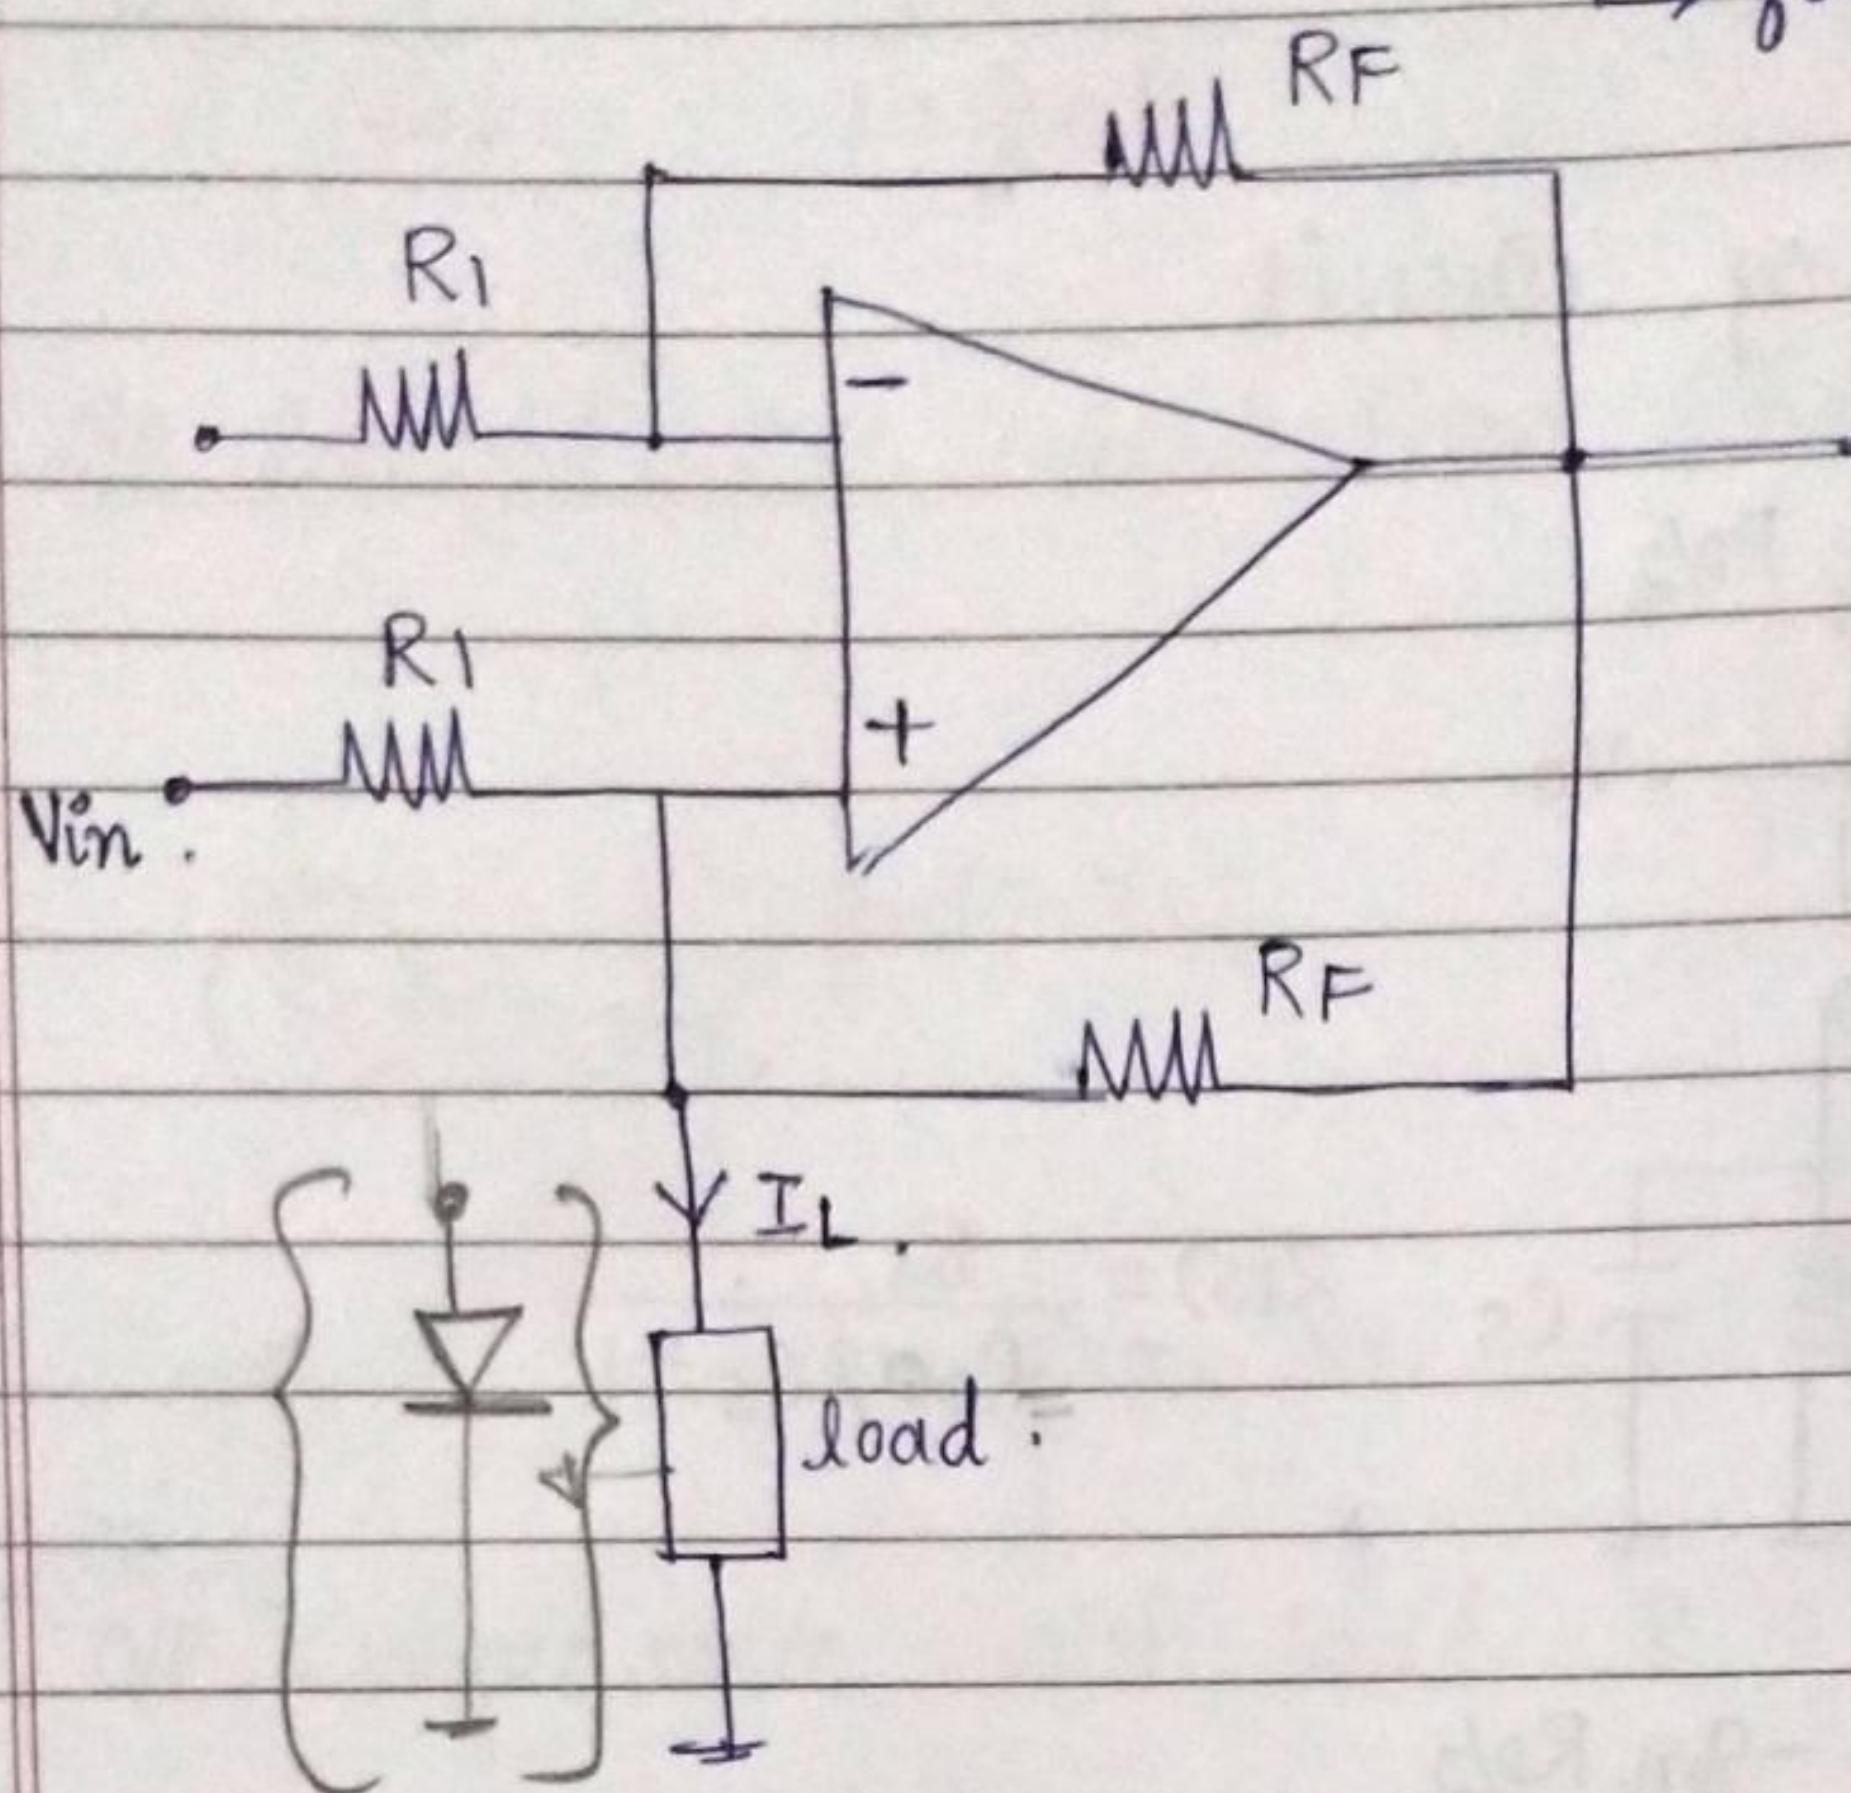 RF
R1
-
R1
+
Vin.
RF
IL.
load: